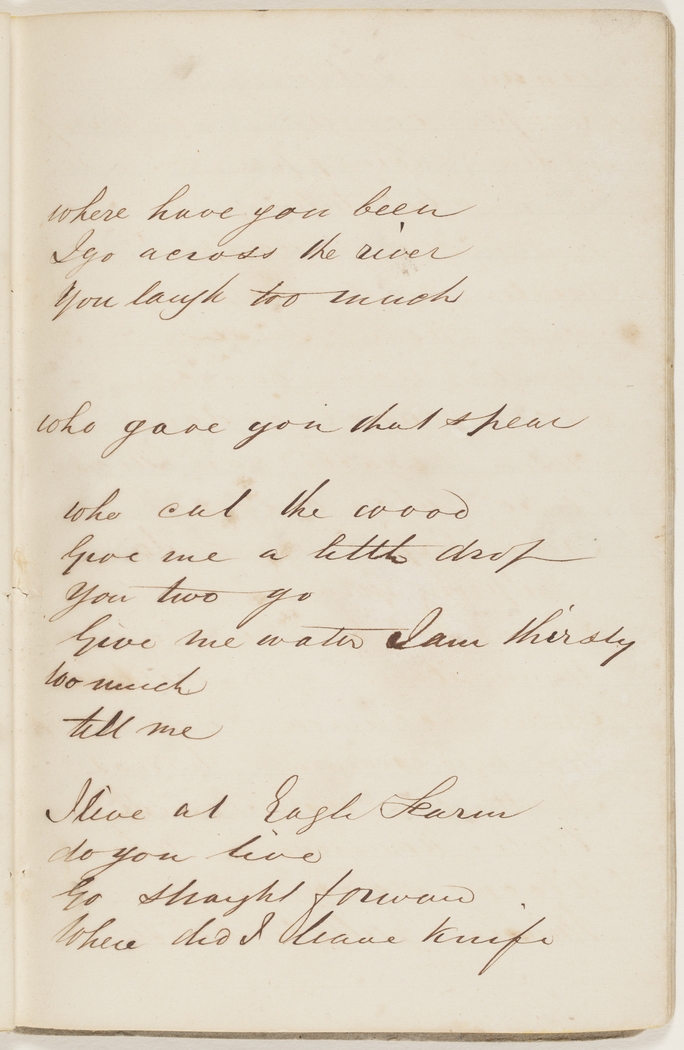 where have you been
I go across the river
You laugh too much
who gave you that spear
who cut the wood
Give me a little drop
You two go
Give me water I am thirsty
too much
tell me
I live at Eagle Farm
do you live
Go straight forward
Where did I leave Knife